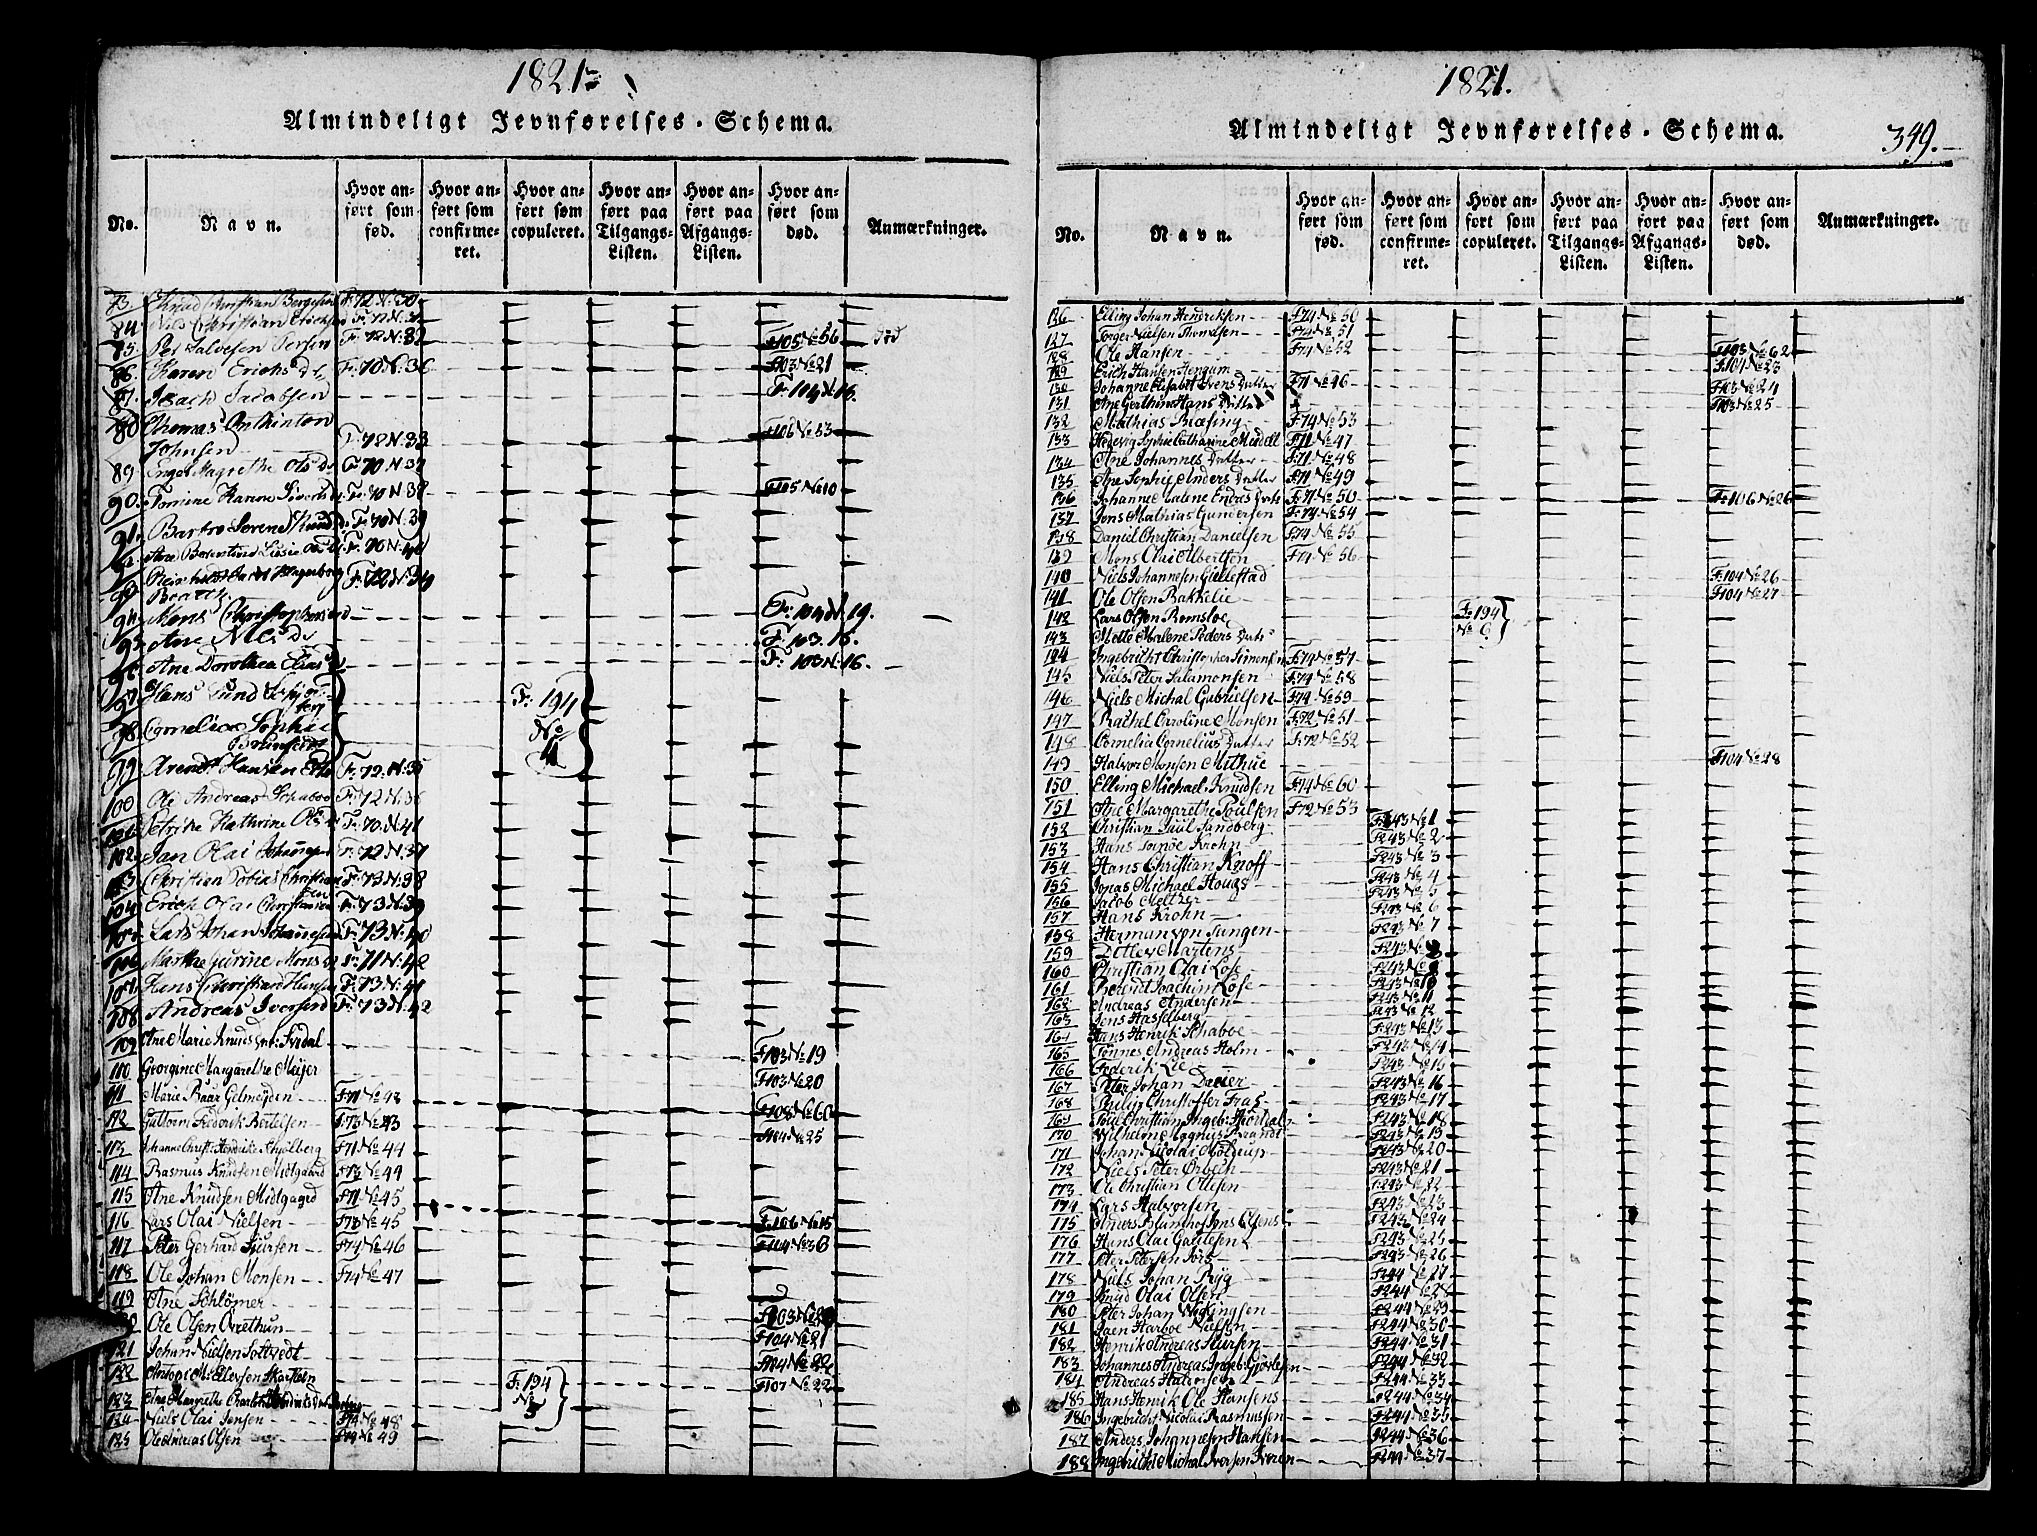 1821
Almindeligt Jevnførelses-Schema.
No.
Navn.
Hvor an-
ført som
fød.
Hvor an-
ført som
confirme-
ret.
Hvor an-
ført som
copuleret.
Hvor an-
ført paa
Tilgangs-
Listen.
Hvor an-
ført paa
Afgangs-
Listen.
Hvor an-
ført som
død.
Anmærkninger.
Knud Christian Bergesen F: 72 N: 30
84 Nils Christian Ericksen F: 72 N:
85 Per Salvesen Iversen F: 72 N: 32 F105 No 56 død
86 Karen Erichs dr F: 70 N: 36 F103 No 21
87. Isach Jacobsen F: 104 N: 18.
88 Thomas
Johnsen F: 72 N: 33 F106 No 53
89 Inger Magrethe Ols dr F: 70 N: 37
90. Tomine Karine Siverts dr F: 70 N: 38 F105 No 10
91. F: 70 N: 39
F: 70 N: 40
F: 72 N: 34
94 Mons Christophersen F: 104 N: 19.
95 Ane Nils dr F: 103. 15.
96 Ane Dorothea Elias dr F: 103 N: 16.
97 Hans Lund F: 194
98 Cornelia Sophie No
4
99 Arendt Hansen F: 72. N: 35
100 Ole Andreas Schaboe F: 72 N: 36
101 Petrike Kathrine Ols dr F: 70 N: 41
102 Jan Olai Johannesen F: 72 N: 37
103 Christian Tobias Christian F: 73 N: 38
sen
104 Erich Olai Christensen F: 73 N: 39
105 Lars Johan Johannesen F: 73 N: 40
106 Marthe Gurine Mons dr F: 71 N: 42
107 Hans Christian Hansen F: 73 N: 41
108 Andreas Iversen F: 73 N: 42
109 Ane Marie Knuds F103 No 19
110 Georgine Margarethe Meijer F103 No 20
111 Marie Baar Gelmeyden F71 No 43
112 Guttorm Frederik Bertelsen F73 No 43 F108 No 60
113 Johanne Christ: Hendrike Kholberg F71 No 44 F104 No 25
114 Rasmus Knudsen Midgaard F73 No 44
115 Ane Knudsen Midgaard F71 No 45
116 Lars Olai Nielsen F73 No 45 F106 No 15
117 Peter Gerhard Siursen F74 No 46 F104 No 36
118 Ole Johan Monsen F74 No 47
119 Ane Schlömer
Ole Olsen Qvethun F103 No 22
121 Johan Nielsen Soltvedt F104 No 21
122 F104 No 22
123 F: 194 F107 No 22
124 Niels Olai Jensen No F74 No 48
5
125 Ole Andreas Olsen F74 No 49
1821.
Almindeligt Jevnførelses-Schema.
349.
No.
Navn.
Hvor an-
ført som
fød.
Hvor an-
ført som
confirme-
ret.
Hvor an-
ført som
copuleret.
Hvor an-
ført paa
Tilgangs-
Listen.
Hvor an-
ført paa
Afgangs-
Listen.
Hvor an-
ført som
død.
Anmærkninger.
126 Elling Johan Hendriksen F74 No 50
127 Torger Nielsen Thomesen F74 No 51
128 Ole Hansen F74 No 52 F103 No 62
129 Erich Hansen Hengum F104 No 23
130 Johanne Elisabet Svens Datter F71 No 46 F103 No 24
131 Ane Gerthine Hans Datter F103 No 25
132 Mathias Bræsing F74 No 53
133 Hedevig Sophie Catharine Meidell F71 No 47
134 Ane Johannes Datter F71 No 48
135 Ane Sophie Anders Datter F71 No 49
136 Johanne Malene Endres Datt: F71 No 50 F: 106 No 26
137 Jens Mathias Gundersen F74 No 54
138 Daniel Christian Danielsen F74 No 55
139 Mons Olai Albertsen F74 No 56
140 Niels Johannesen Giellestad F104 No 26
141 Ole Olsen Bakkelie F104 No 27
142 Lars Olsen Romsloe F: 194
143 Mette Malene Peders Datt: No 6
144 Ingebricht Christopher Simonsen F74 No 57
145 Niels Peter Salamonsen F74 No 58
146 Niels Michal Gabrielsen F74 No 59
147 Rachel Caroline Monsen F: 72 No 51
148 Cornelia Cornelius Datter F: 72 No 52
149 Halvor Monsen Mithue F104 No 28
150 Elling Michael Knudsen F74 No 60
151 Ane Margarethe Poulsen F72 No 53
152 Christian Paul Sandberg F243 No 1
153 Hans Krohn F243 No 2
154 Hans Christian Knoff F243 No 3
155 Jonas Michael Hougs F243 No 4
156 Jacob Meltzer F243 No 5
157 Hans Krohn F243 No 6
158 Herman von Tangen F243 No 7
159 Detlev Martens F243 No 8
160 Christian Olai Lose F243 No 9
161 Berendt Joachim Lose F243 No 10
162 Andreas Andersen F243 No 11
163 Jens Hasselberg F243 No 12
164 Hans Henrik Schaboe F: 243 No 13
165 Tønnes Andreas Holm F243 No 14
166 Frederik Lie F243 No 15
167 Peter Johan Daeer F243 No 16
168 Philip Christoffer Fras F243 No 17
169 Poul Christian Ingeb: F243 No 18
170 Wilhelm Magnus Brandt F243 No 19
171 Johan Nicolai Moldrup F243 No 20
172 Niels Peter Ørbech F243 No 21
173 Ole Christian Ottesen F243 No 22
174 Lars Halvorsen F243 No 23
175 Anders F243 No 24
176 Hans Olai Gautesen F243 No 25
177 Peter Petersen Fors F243 No 26
178 Niels Johan Ryg F244 No 27
179 Knud Olai Olsen F244 No 28
180 Peter Johan Wickingsen F244 No 29
181 Jaen Harboe Nielsen F244 No 30
182 Henrik Andreas Siursen F244 No 31
183 Johannes Andreas Ingeb: F244 No 32
184 Andreas Halvorsen F244 No 33
185 Hans Henrik Ole Hansens F244 No 34
186 Ingebricht Nicolai Rasmussen F244 No 35
187 Anders Johannesen Hansen F244 No 36
188 Ingebricht Michal Iversen F244 No 37